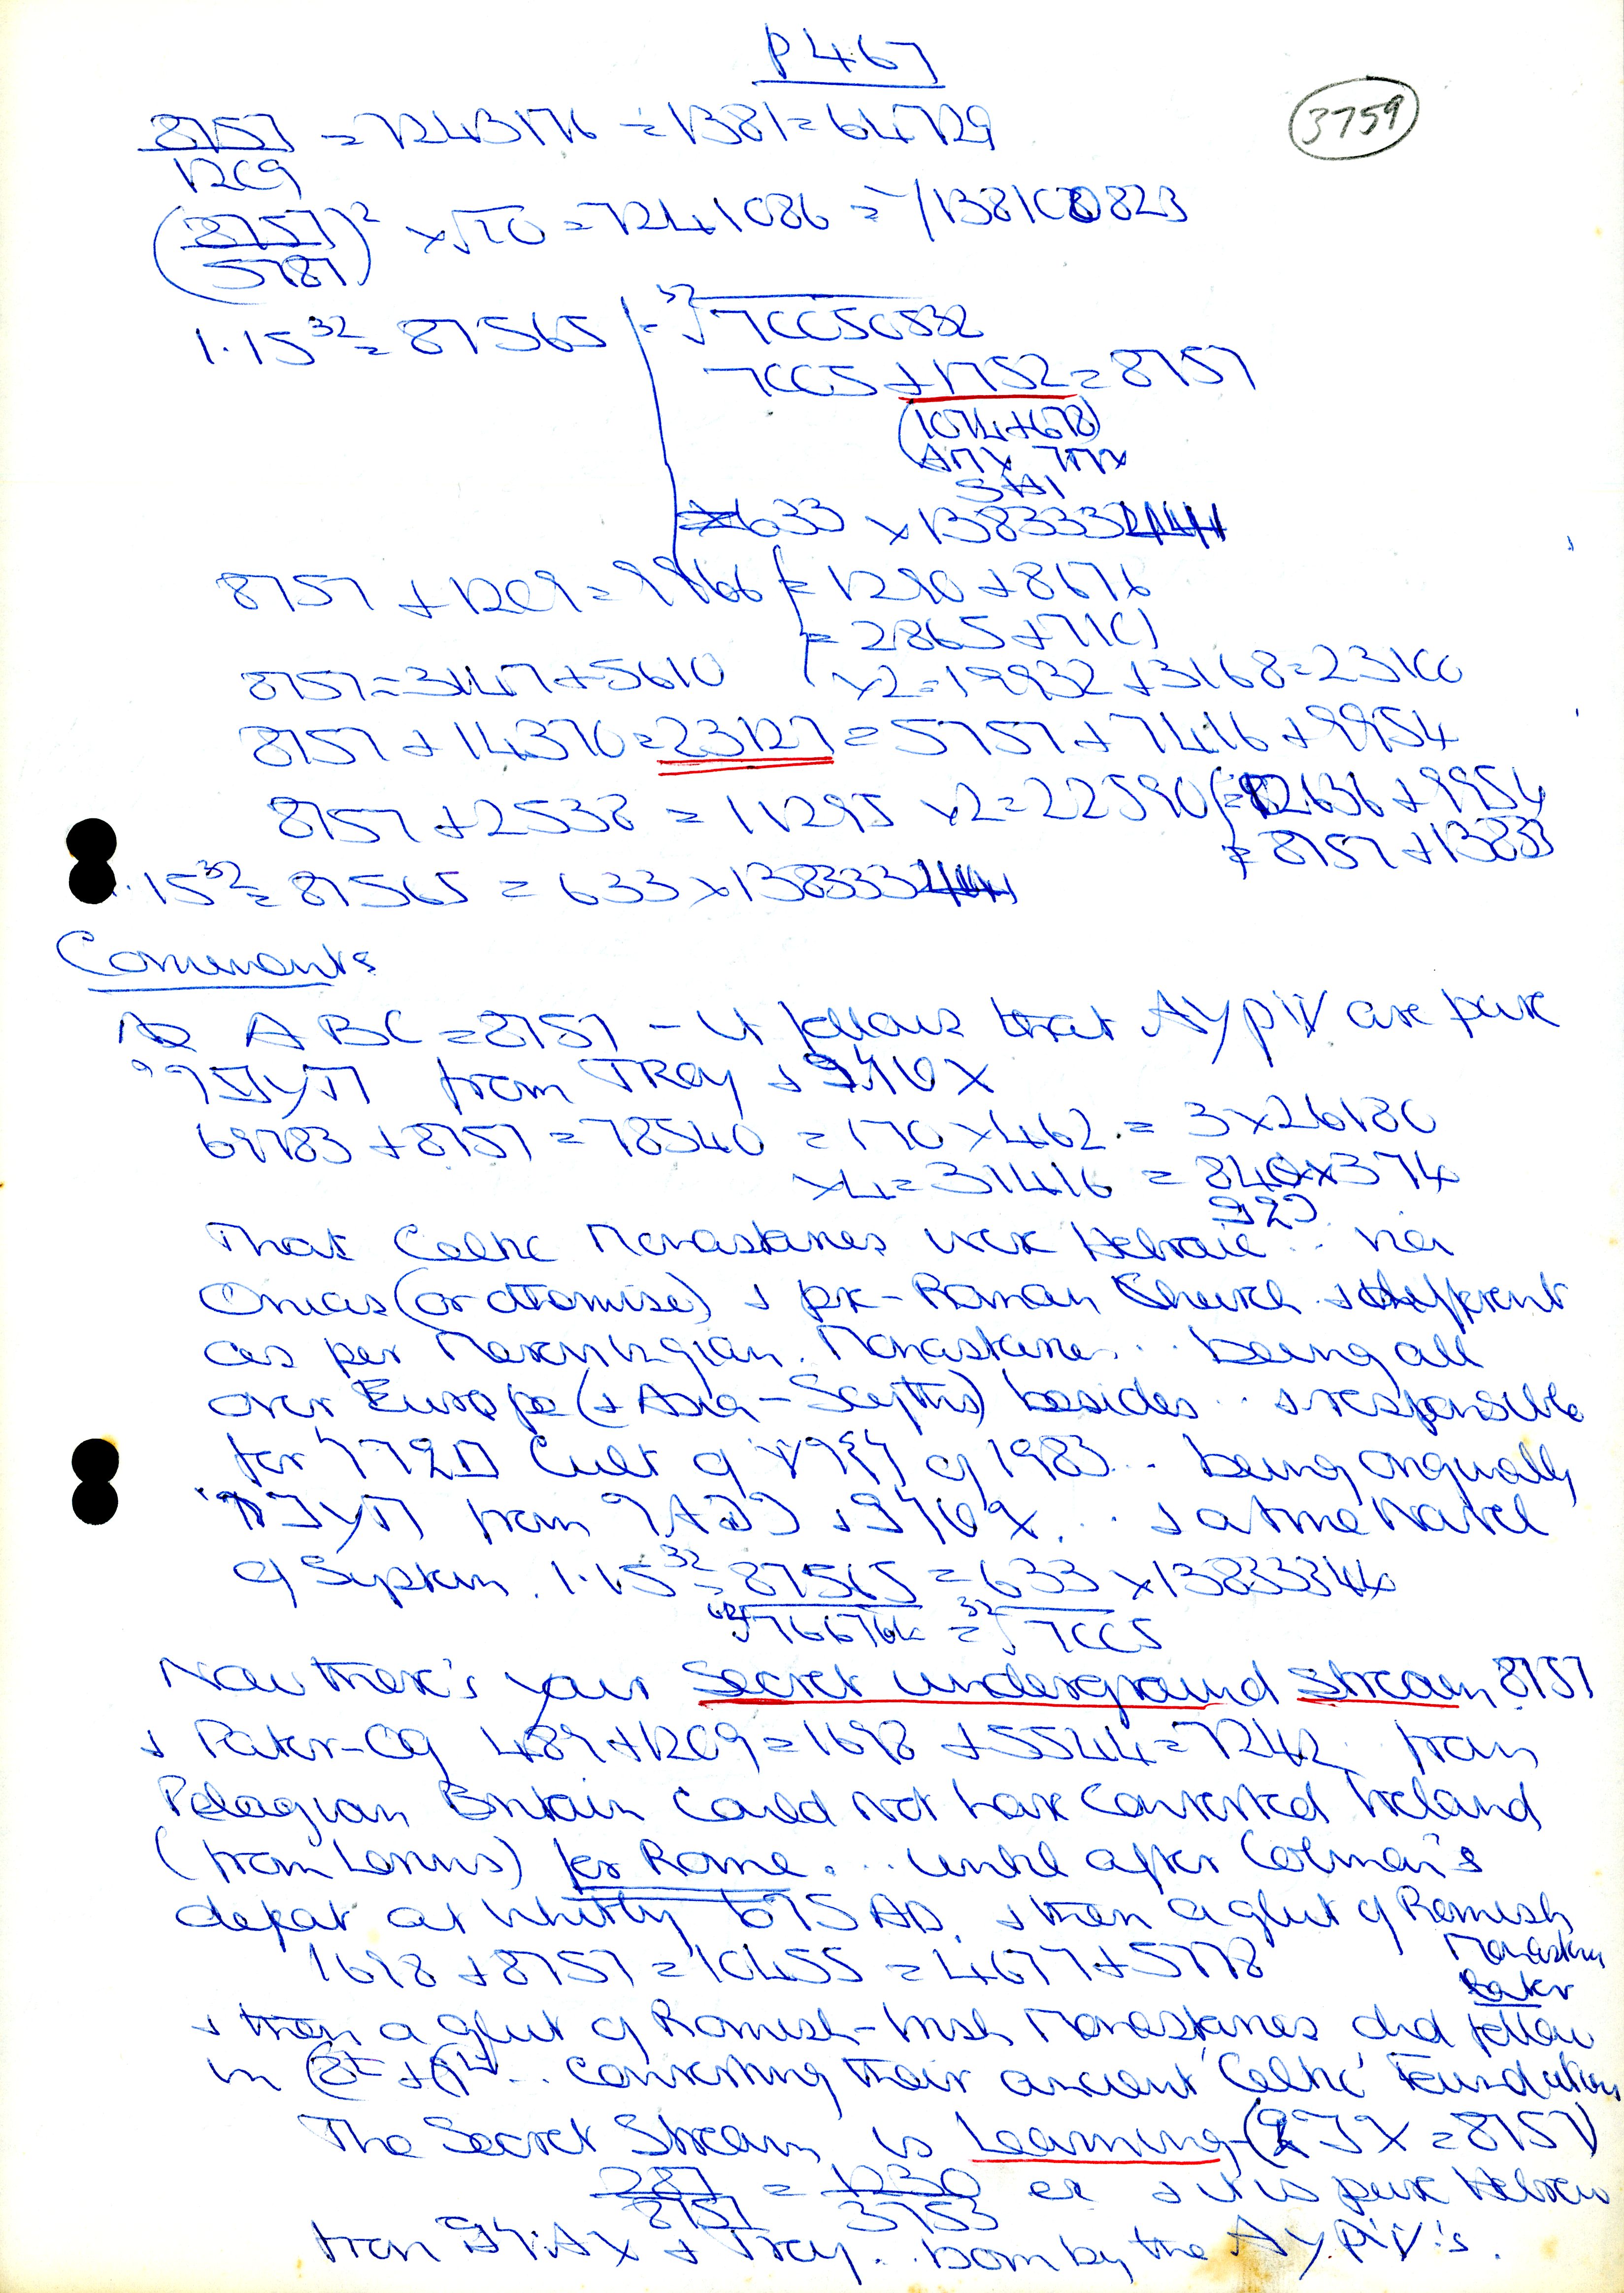 P467
3759
8757/1209 = 7243176 ÷ 1381 = 64729
(8757/5787)² × √10 = 7241086 = √/138100823
1.15³² = 87565 = ³²√70050532
7005 + 1752 = 8757
(1074 + 678)
633 × 1383333
8757 + 1209 = 9966 = 1290 + 8676
= 2865 + 7101
8757 = 3147 + 5610 ×2 = 19932 + 3168 = 23100
8757 + 14370 = 23127 = 5757 + 7416 + 9954
8757 + 2538 = 11295 ×2 = 22590 = 12636 + 9954
= 8757 + 13833
1.15³² = 87565 = 633 × 1383333
Comments
ABC = 8757 – it follows that are pure
from TROY +
69783 + 8757 = 78540 = 170 × 462 = 3 × 26180
×4 = 31416 = 840 × 374
That Celtic Monasteries were Hebraic .. via
Onias (or otherwise) + pre-Roman Church + different
as per Merovingian Monasteries .. being all
over Europe (+ Asia – Scyths) besides .. + responsible
for Cult of of 1983 .. being originally
from + ... + at the Navel
of System. 1.15³² = 87565 = 633 × 1383334
⁶⁴√ = ³²√7005
Now there's your Secret underground Stream 8757
+ Pater-Og 489 + 1209 = 1698 + 5544 = 7242 from
Pelagian Britain could not have converted Ireland
(from Lerins) for Rome ... until after Colman's
defeat at Whitby 675 AD. + then a glut of Romish
1698 + 8757 = 10455 = 4677 + 5778
Monastery
Later
+ then a glut of Romish-Irish Monasteries did follow
in .. converting their ancient 'Celtic' Foundations
The Secret Stream is Learning ( = 8757)
287/8757 = 1230/3753 + it is pure Hebrew
from + Troy .. born by the